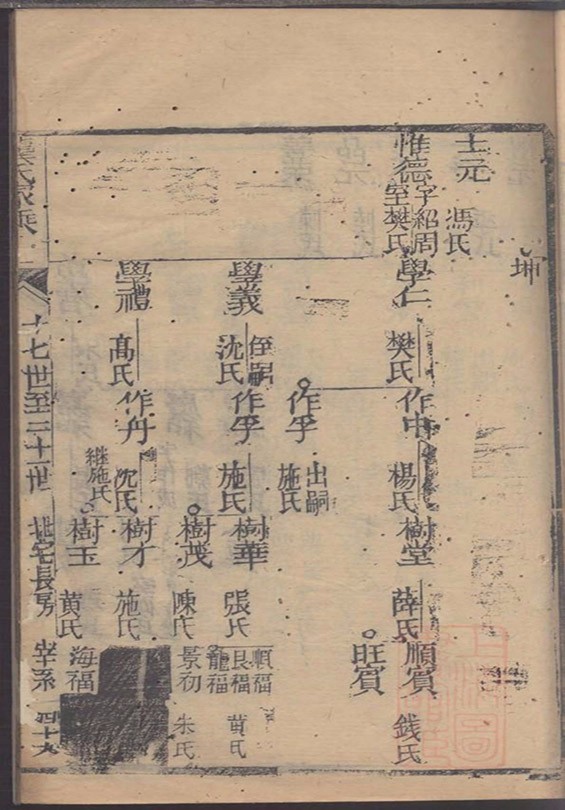 坤
士元 馮氏
惟德 字紹周 室樊氏
學仁 樊氏
作中 楊氏
樹堂 薛氏
順賓 錢氏
旺賓
作孚 出嗣 施氏
學義 侄嗣 沈氏
作孚 施氏
樹華 張氏
順福
艮福 黄氏
龍福
樹茂 陳氏
景初 朱氏
學禮 高氏
作舟 沈氏 继施氏
樹才 施氏
樹玉 黄氏
海福
氏家乘
十七世至二十一世
長房
宰系
四十九